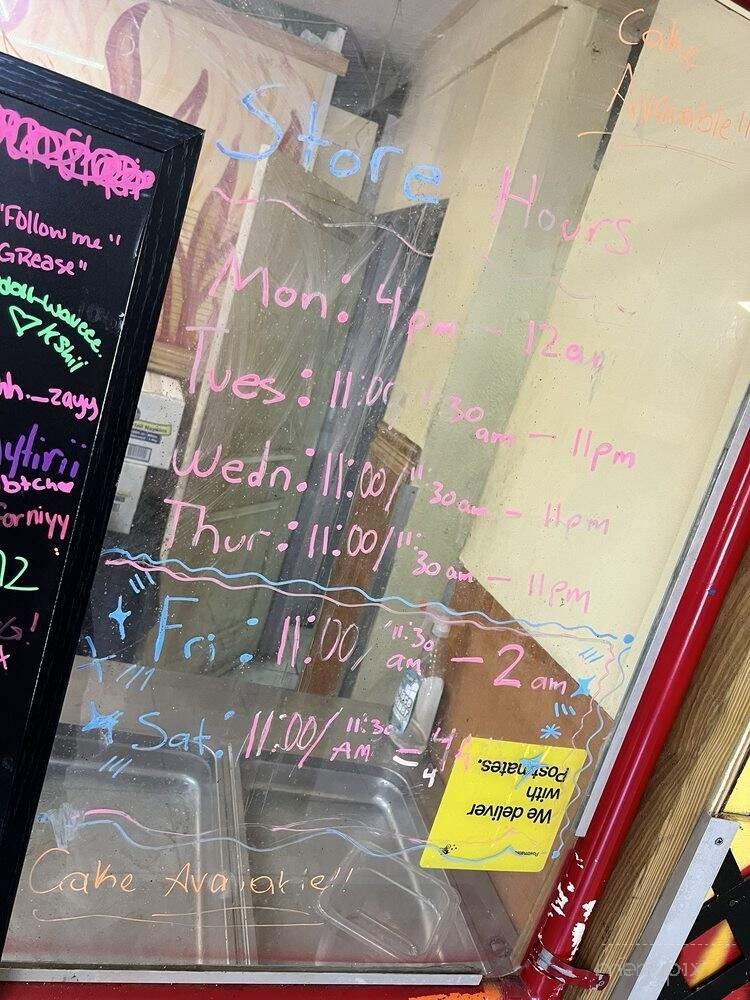 Cake
Available!!
Store Hours
Mon: 4pm - 12am
Tues: 11:00/11:30am - 11pm
Wedn: 11:00/11:30am - 11pm
Thur: 11:00/11:30am - 11pm
Fri: 11:00/11:30am - 2am
Sat: 11:00/11:30AM = 4
4
We deliver
with
Postmates.
Cake Available!!
"Follow me"
GRease"
♡ KShii
btcher